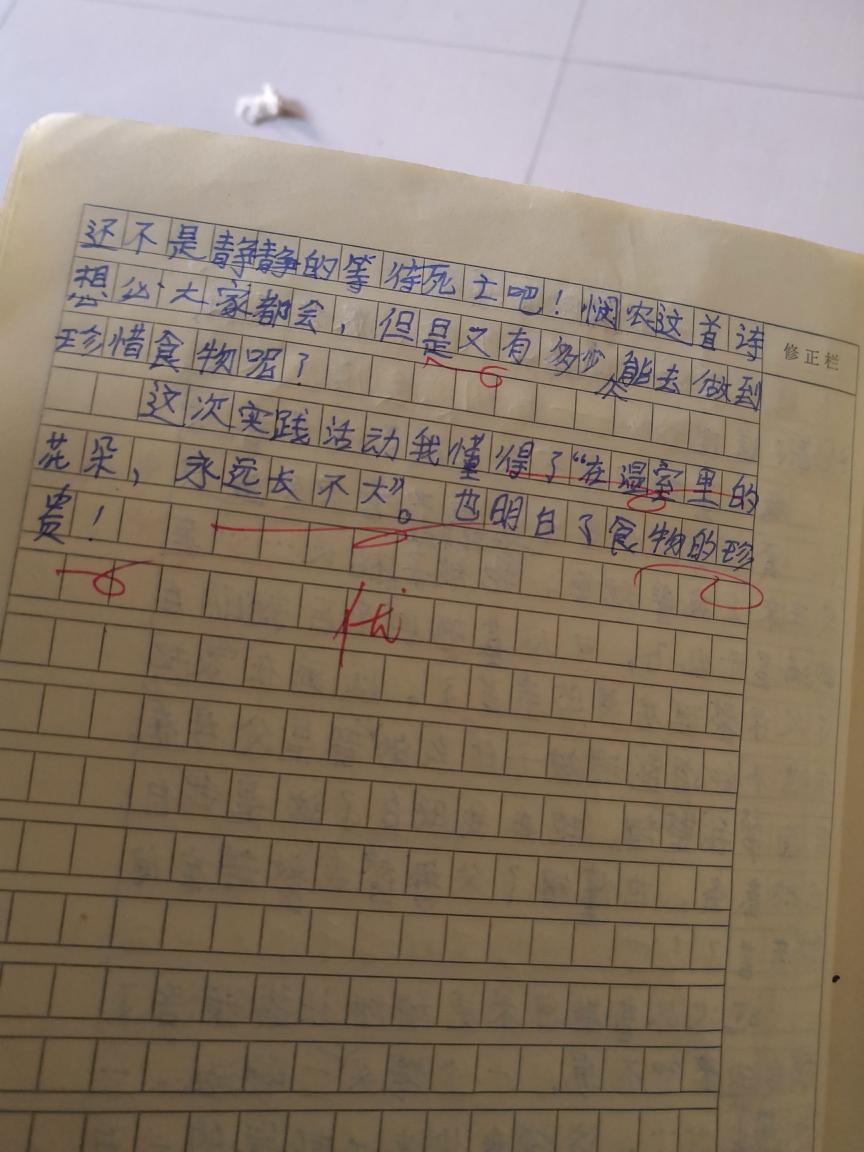 还不是静静的等待死亡吧！悯农这首诗
想必大家都会，但是又有多少人能去做到
珍惜食物呢？
这次实践活动我懂得了“在温室里的
花朵，永远长不大”。也明白了食物的珍
贵！
优
修正栏